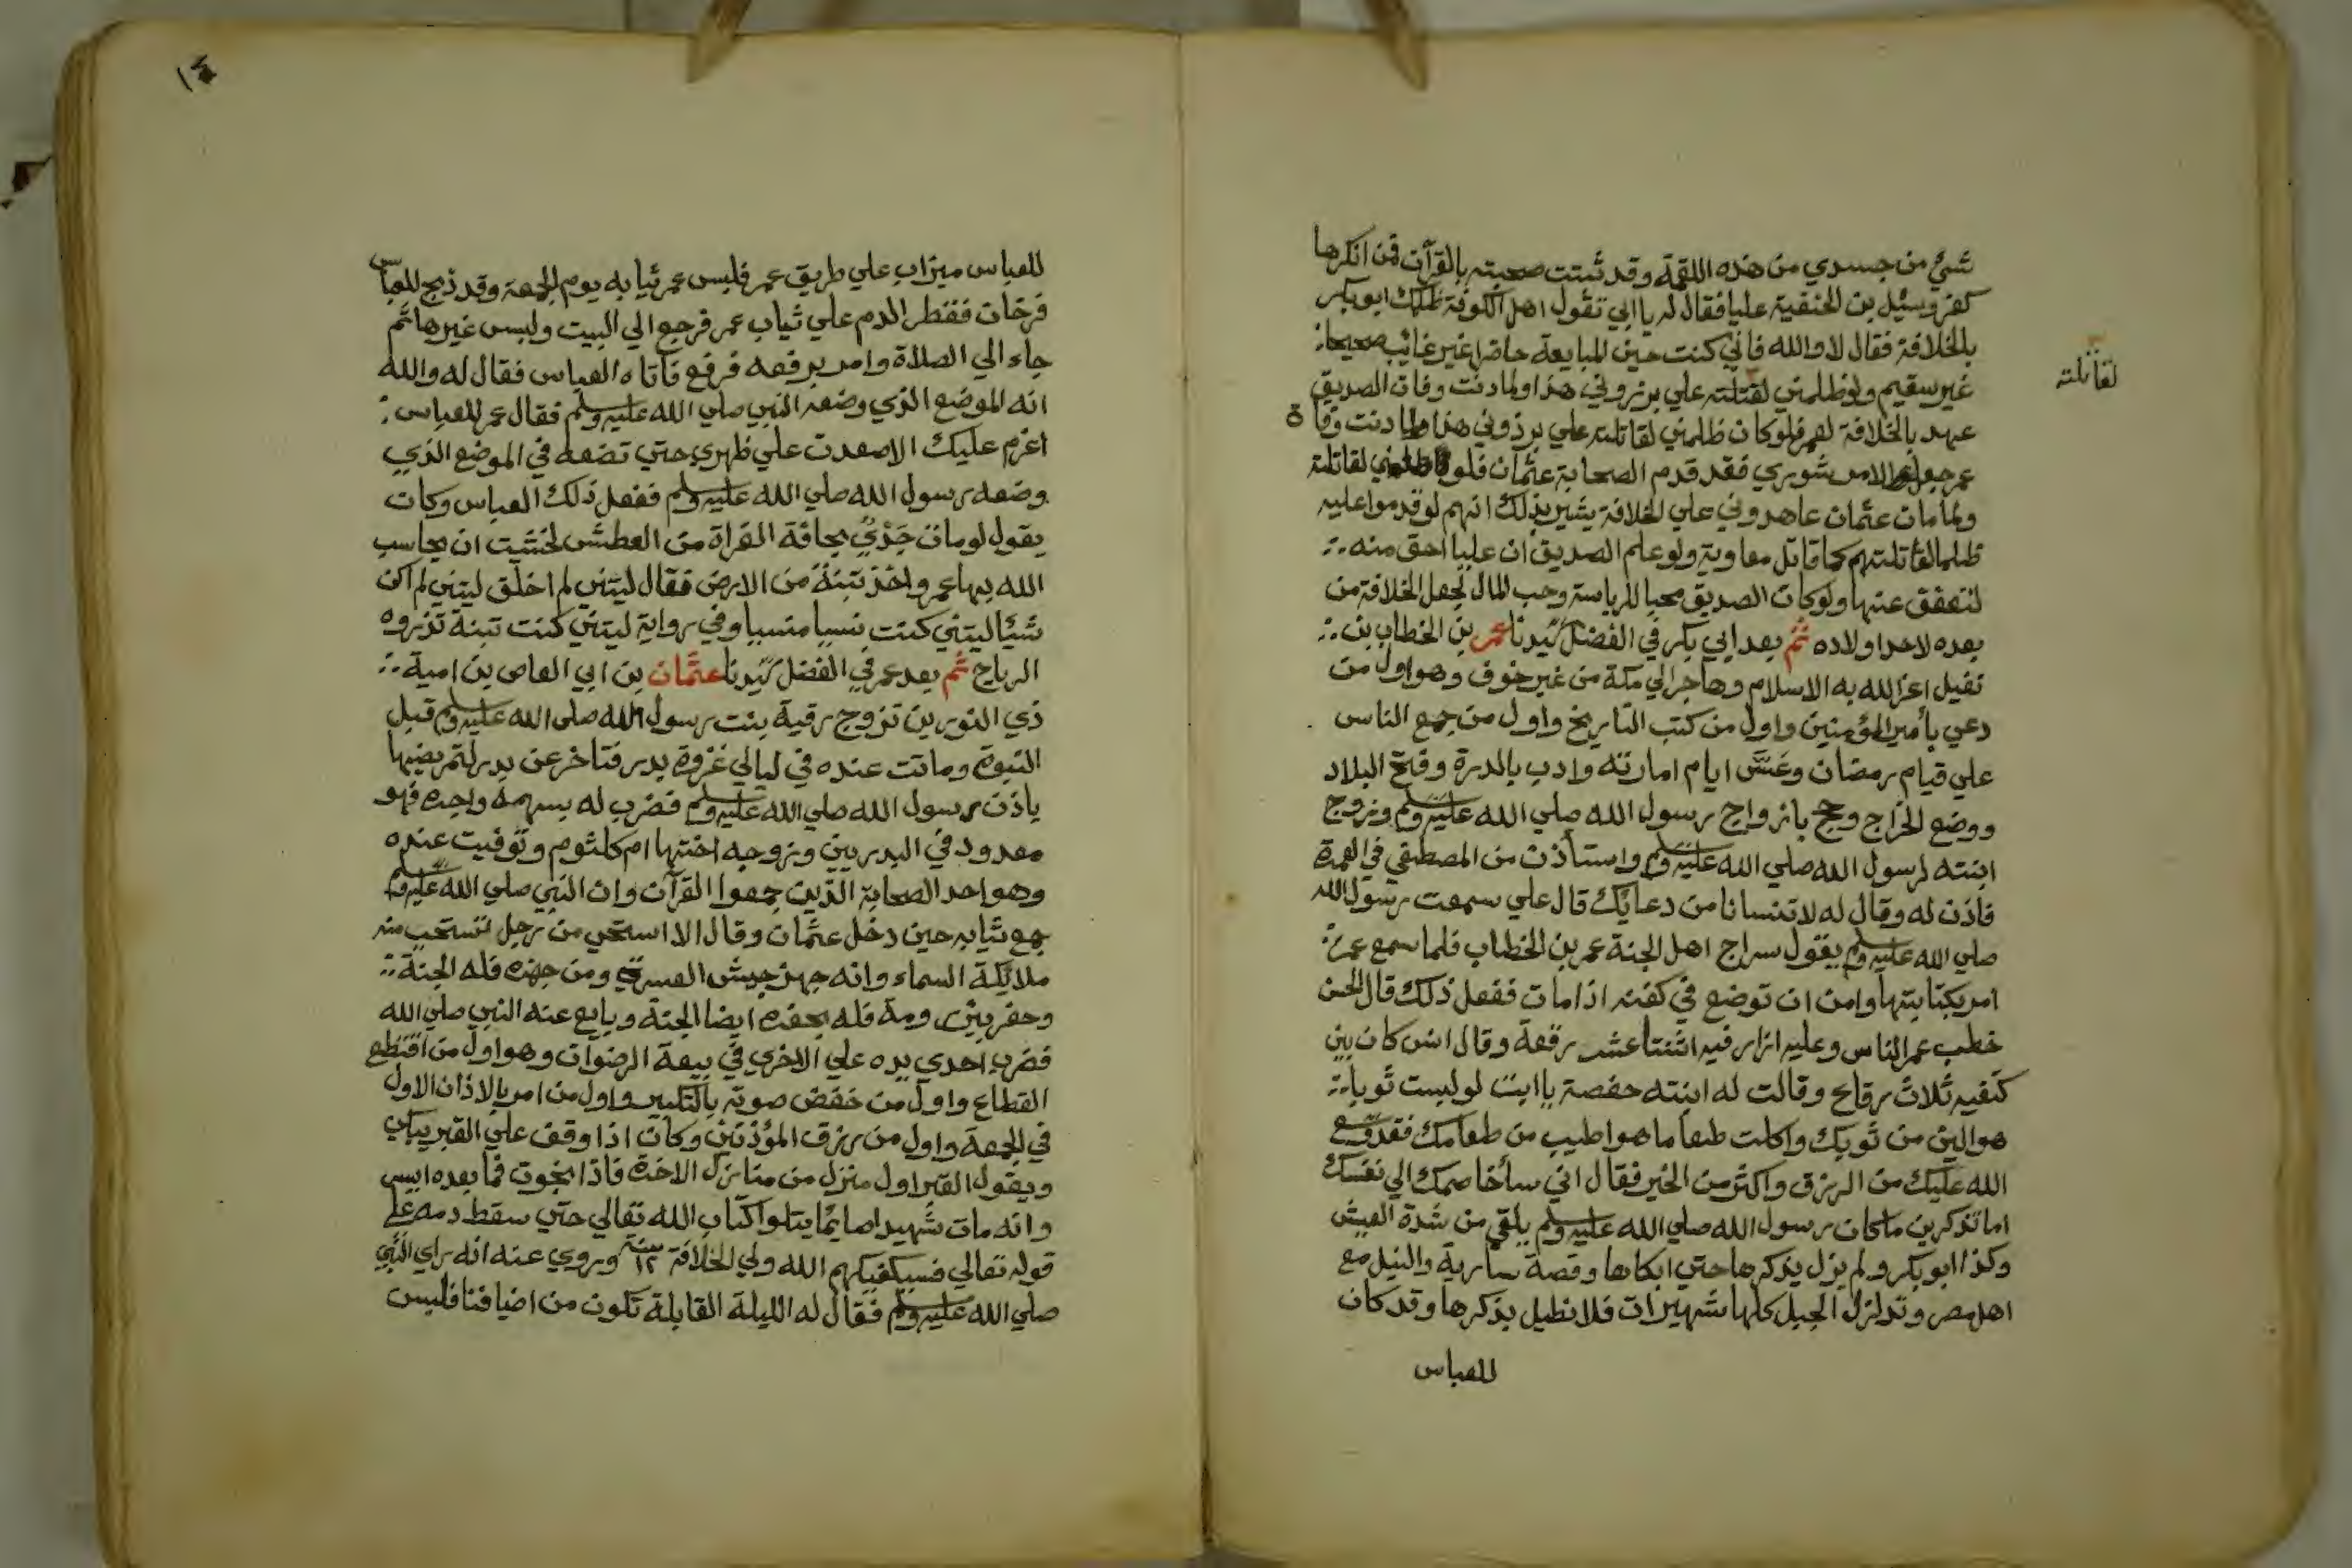 شئ من جسدي من هذه اللقمة وقد ثبتت صحبته بالقرآن فمن انكرها
كفر وسئل بن الحنفية عليا فقال له يا ابي تقول اهل الكوفة ظلمك ابو بكر
بالخلافة فقال لا والله فاني كنت حين المبايعة حاضرا غير غائب صحيحا
غير سقيم ولو ظلمني لقتلته علي برذوني هذا ولما دنت وفات الصديق
لقاتلته
عهد بالخلافة لعمر فلو كان ظلمني لقاتلته علي برذوني هذا ولما دنت وفاة
عمر جعل الامر شوري فقد قدم الصحابة عثمان فلو ظلمني لقاتلته
ولما مات عثمان عاهدوني علي الخلافة يشير بذلك انهم لو قدموا عليه
ظلما لقاتلتهم كما قاتل معاوية ولو علم الصديق ان عليا احق منه
لتعفف عنها ولو كان الصديق محبا للرياسة وحب المال لجعل الخلافة من
بعده لاحد اولاده ثم بعد ابي بكر في الفضل سيدنا عمر بن الخطاب بن
نفيل اعز الله به الاسلام وهاجر الي مكة من غير خوف وهو اول من
دعي بأمير المؤمنين واول من كتب التاريخ واول من جمع الناس
علي قيام رمضان وعسّ ايام امارته وادب بالدرة وفتح البلاد
ووضع الخراج وحج بازواج رسول الله صلي الله عليه وسلم وتزوج
ابنته لرسول الله صلي الله عليه وسلم واستأذن من المصطفي في العمرة
فاذن له وقال له لا تنسانا من دعائك قال علي سمعت رسول الله
صلي الله عليه وسلم يقول سراج اهل الجنة عمر بن الخطاب فلما سمع عمر
امر بكتابتها وامر ان توضع في كفنه اذا مات ففعل ذلك قال الحسن
خطب عمر الناس وعليه ازار فيه اثنتا عشر رقعة وقال انس كان بين
كتفيه ثلاث رقاع وقالت له ابنته حفصة يا ابت لو لبست ثوبا
هو الين من ثوبك واكلت طعاما هو اطيب من طعامك فقد وسع
الله عليك من الرزق واكثر من الخير فقال اني سأخاصمك الي نفسك
اما تذكرين ما كان رسول الله صلي الله عليه وسلم يلقي من شدة العيش
وكذا ابو بكر ولم يزل يذكرها حتي ابكاها وقصة سارية والنيل مع
اهل مصر وتزلزل الجبل كلها شهيرات فلا نطيل بذكرها وقد كان
للعباس
١٤
للعباس ميزاب علي طريق عمر فلبس عمر ثيابه يوم الجمعة وقد ذبح للعباس
فرخان فقطر الدم علي ثياب عمر فرجع الي البيت ولبس غيرها ثم
جاء الي الصلاة وامر برفعه فرفع فاتاه العباس فقال له والله
انه الموضع الذي وضعه النبي صلي الله عليه وسلم فقال عمر للعباس
اعزم عليك الا صعدت علي ظهري حتي تضعه في الموضع الذي
وضعه رسول الله صلي الله عليه وسلم ففعل ذلك العباس وكان
يقول لو مات جَدْيٌ بحافة الفراة من العطش لخشيت ان يحاسب
الله بها عمر واخذ تبنة من الارض فقال ليتني لم اخلق ليتني لم اكن
شيئا ليتني كنت نسيا منسيا وفي رواية ليتني كنت تبنة تذروه
الرياح ثم بعد عمر في الفضل سيدنا عثمان بن ابي العاص بن امية
ذي النورين تزوج رقية بنت رسول الله صلي الله عليه وسلم قبل
النبوة وماتت عنده في ليالي غزوة بدر فتاخر عن بدر لتمريضها
باذن رسول الله صلي الله عليه وسلم فضرب له بسهمه واجره فهو
معدود في البدريين وزوجه اختها ام كلثوم وتوفيت عنده
وهو احد الصحابة الذين جمعوا القرآن وان النبي صلي الله عليه وسلم
جمع ثيابه حين دخل عثمان وقال الا استحي من رجل تستحي منه
ملائكة السماء وانه جهز جيش العسرة ومن جهزه فله الجنة
وحفر بئر رومة فله بحفره ايضا الجنة وبايع عنه النبي صلي الله
فضرب احدي يده علي الاخري في بيعة الرضوان وهو اول من اقتطع
القطاع واول من خفض صوته بالتكبير واول من امر بالاذان الاول
في الجمعة واول من رزق المؤذنين وكان اذا وقف علي القبر يبكي
ويقول القبر اول منزل من منازل الاخرة فاذا نجوت فما بعده ايسر
وانه مات شهيدا صائما يتلوا كتاب الله تعالي حتي سقط دمه علي
قوله تعالي فسيكفيكهم الله ولي الخلافة ١٢ سنة وروي عنه انه راي النبي
صلي الله عليه وسلم فقال له الليلة القابلة تكون من اضيافنا فلبس